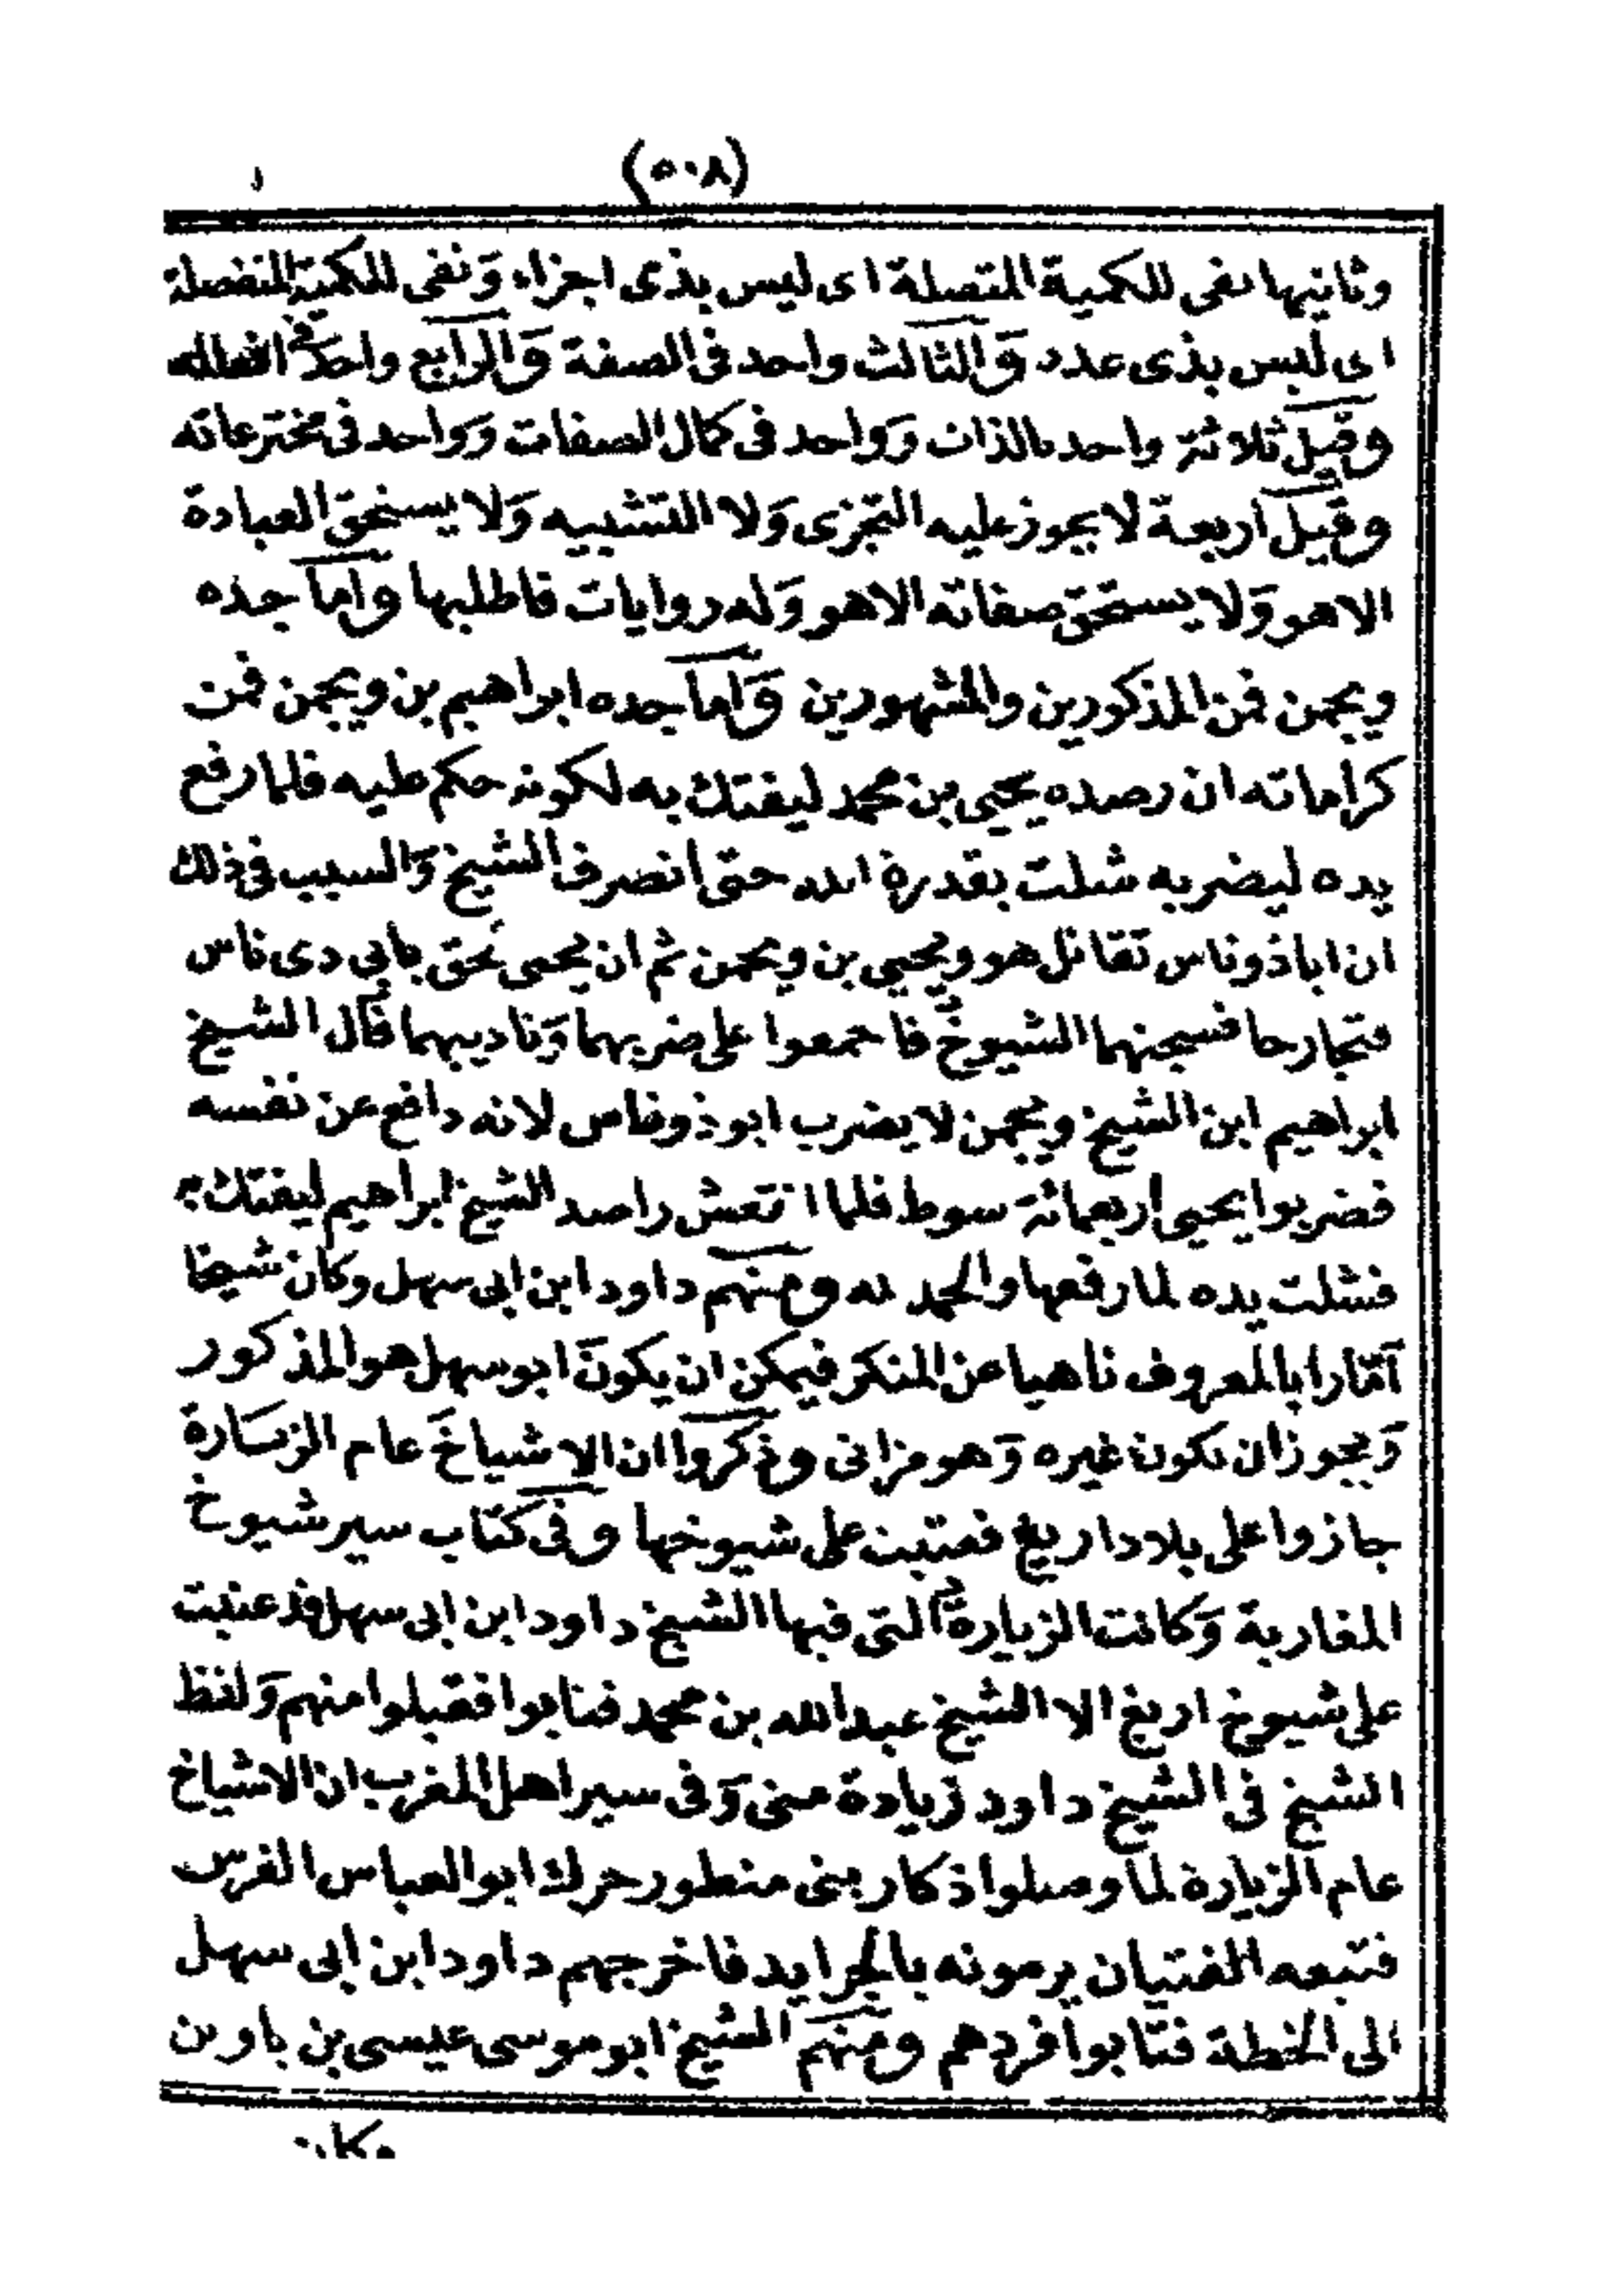 (٥٠٨)
وثانيها نفى للكمية المتصلة اى ليس بذى اجزاء وَنفى للكمية المنفصلة
اى ليس بذى عدد وَالثالث واحد فى الصفة وَالرابع واحد فى افعاله
وقيل ثلاثة واحد بالذات وَواحد فى كمال الصفات وَواحد فى مخترعاته
وقيل اربعة لا يجوز عليه التجزى وَلا التشبيه وَلا يستحق العبادة
الا هو وَلا يستحق صفاته الا هو وَله روايات فاطلبها واما جده
ويجمن فمن المذكورين والمشهورين وَاما جده ابراهيم بن ويجمن فمن
كراماته ان رصده يحيى بن محمد ليفتك به لكونه حكم عليه فلما رفع
يده ليضربه شلت بقدرة الله حتى انصرف الشيخ وَالسبب فى ذلك
ان اباذوناس تقاتل هو ويحيى بن ويجمن ثم ان يحيى لحق بابى دى ناس
فتجارحا فسجنهما الشيوخ فاجمعوا على ضربهما وَتاديبهما فقال الشيخ
ابراهيم ابن الشيخ ويجمن لا يضرب ابوذوناس لانه دافع عن نفسه
فضربوا يحيى اربعمائة سوط فلما انتعش راصد الشيخ ابراهيم ليفتك به
فشلت يده لما رفعها والحمد لله ومنهم داود ابن ابى سهل وكان شيخا
اَمّارا بالمعروف ناهيا عن المنكر فيمكن ان يكون ابو سهل هو المذكور
وَيجوز ان يكون غيره وَهو مزاتى وذكروا ان الاشياخ عام الزيارة
جازوا على بلاد اريغ فعتبت على شيوخها وفى كتاب سير شيوخ
المغاربة وَكانت الزيارة التى فيها الشيخ داود ابن ابى سهل قد عتبت
على شيوخ اريغ الا الشيخ عبد الله بن محمد فتابوا فقبلوا منهم وَلفظ
الشيخ فى الشيخ داود زيادة منى وَفى سير اهل المغرب ان الاشياخ
عام الزيارة لما وصلوا اذكار بنى منطور حرك ابو العباس الفرس
فتبعه الفتيان يرمونه بالجرايد فاخرجهم داود ابن ابى سهل
الى الخطة فتابوا فردهم ومنهم الشيخ ابو موسى عيسى بن باوين